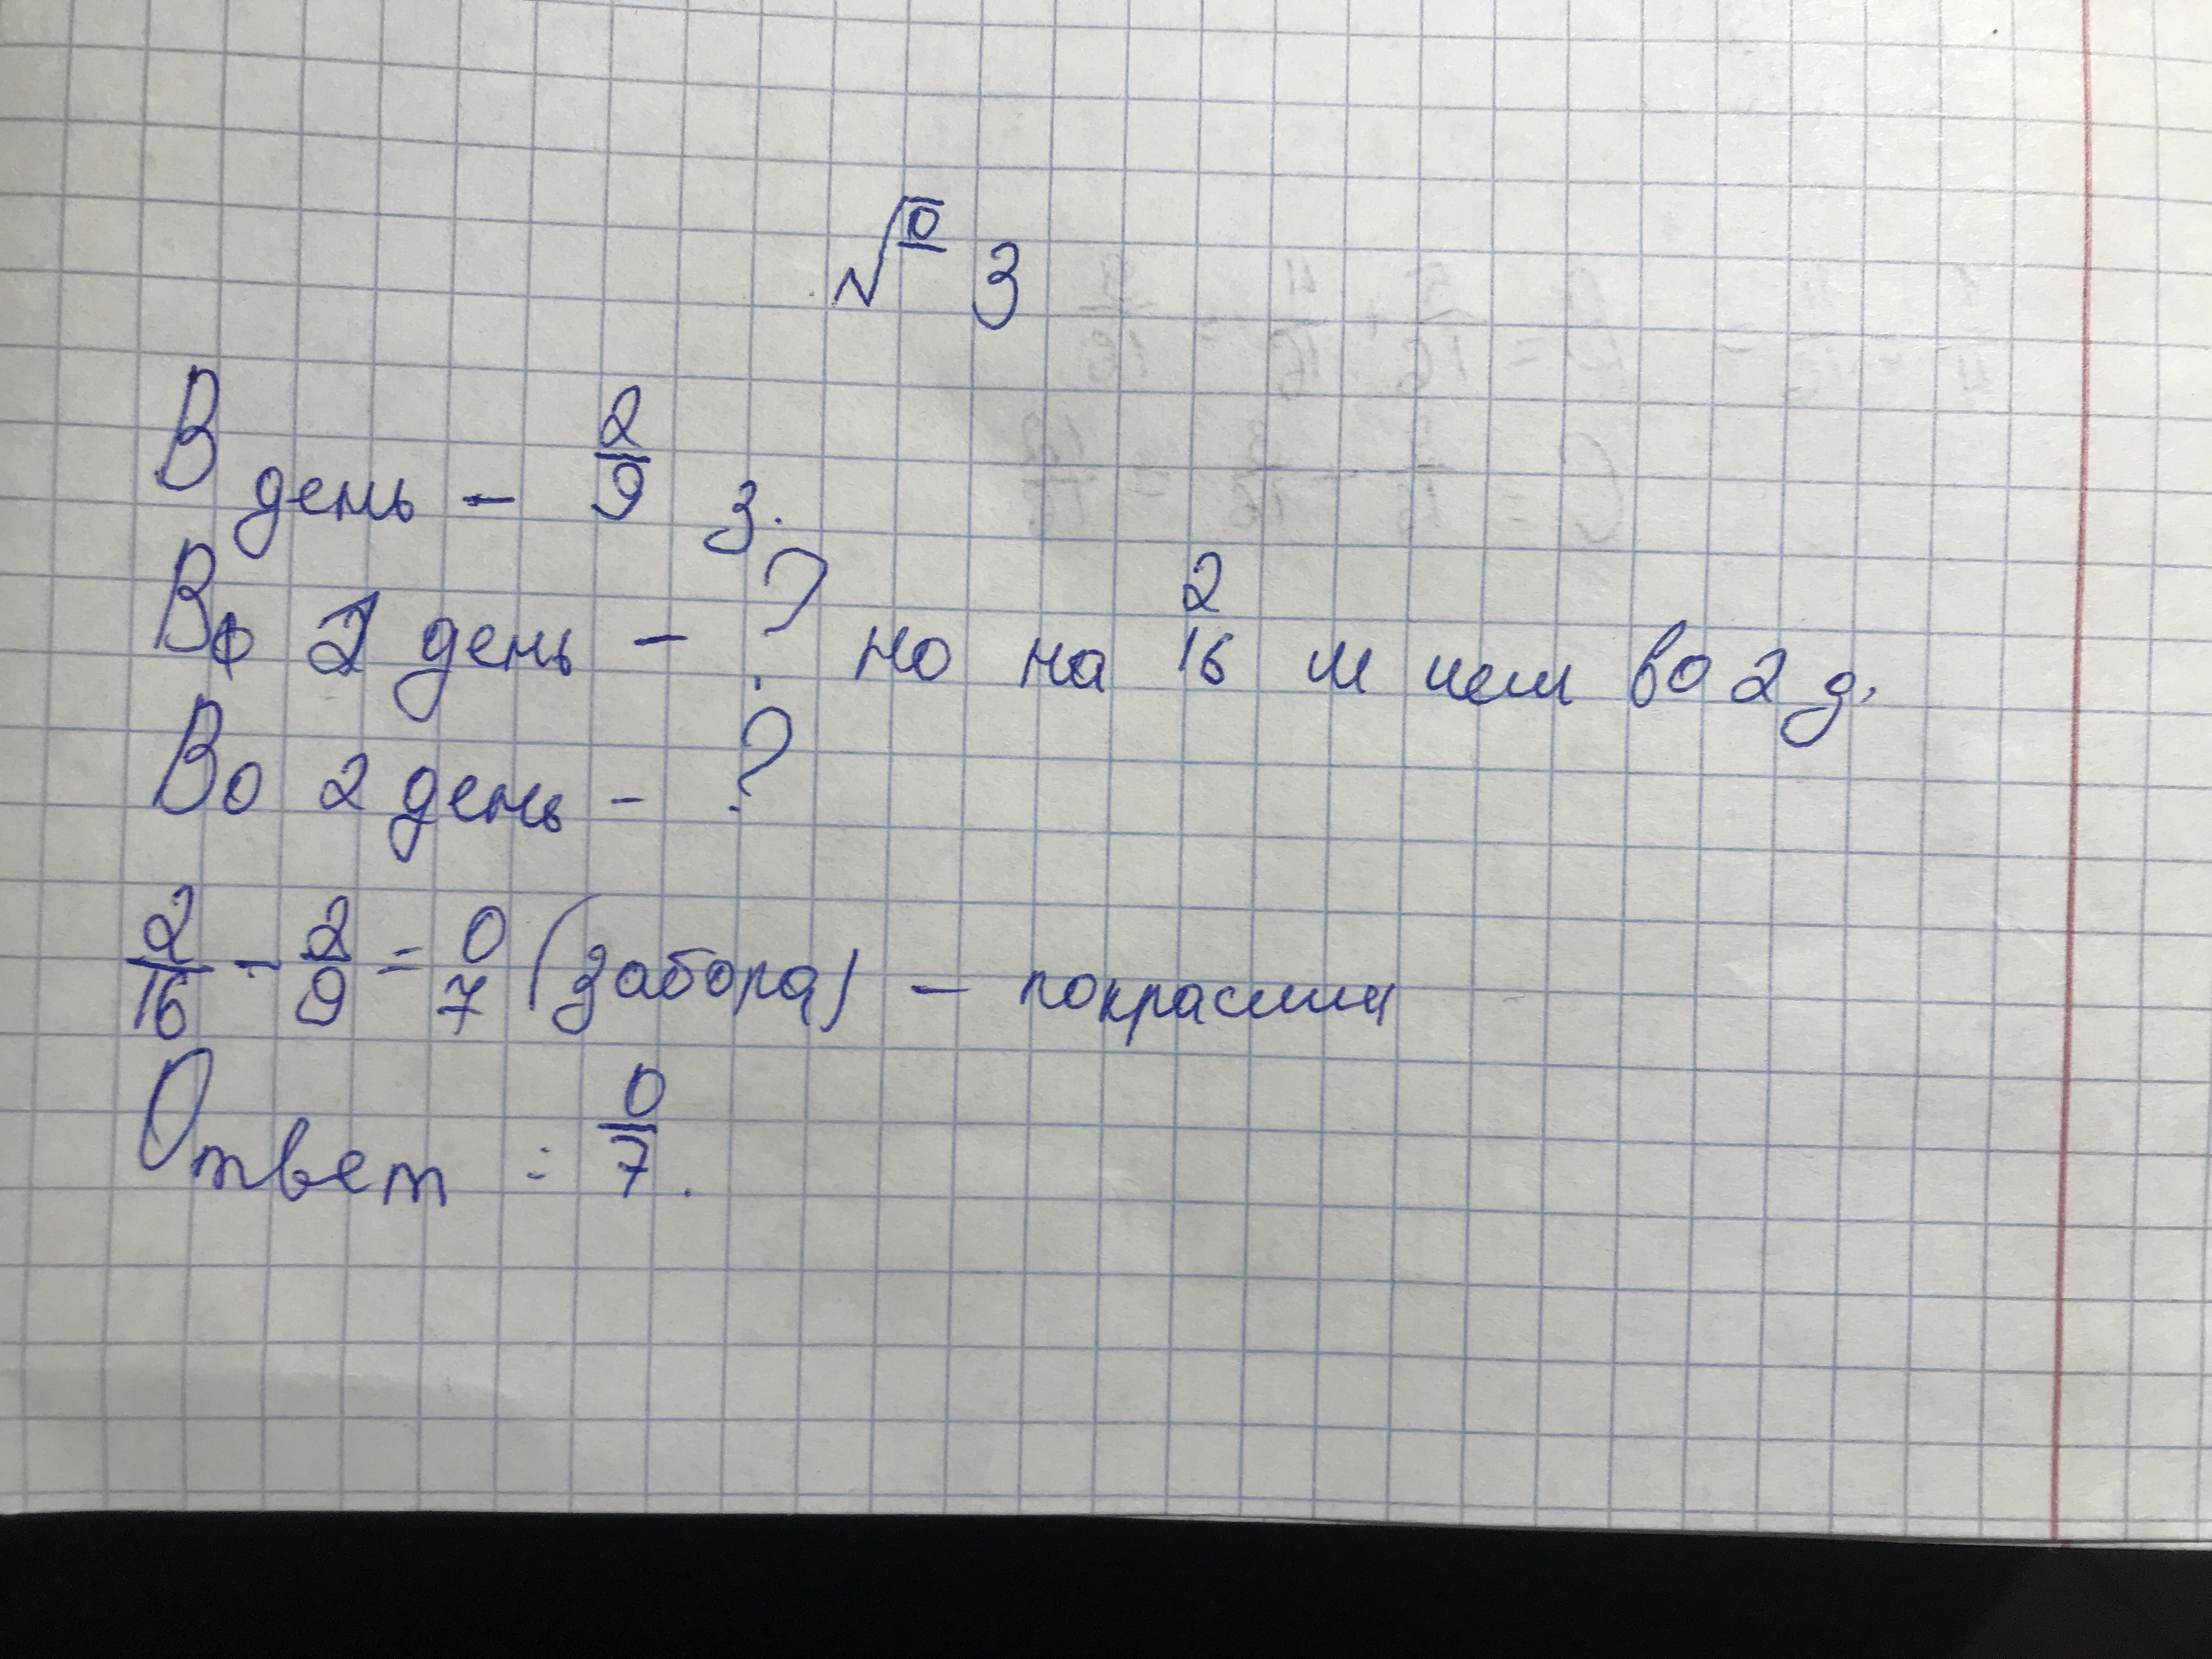 № 3
В день - 2/9 з.
Во 2 день - ? но на 2/16 м чем во 2 д.
Во 2 день - ?
2/16 - 2/9 = 0/7 (забора) - покрасили
Ответ: 0/7.